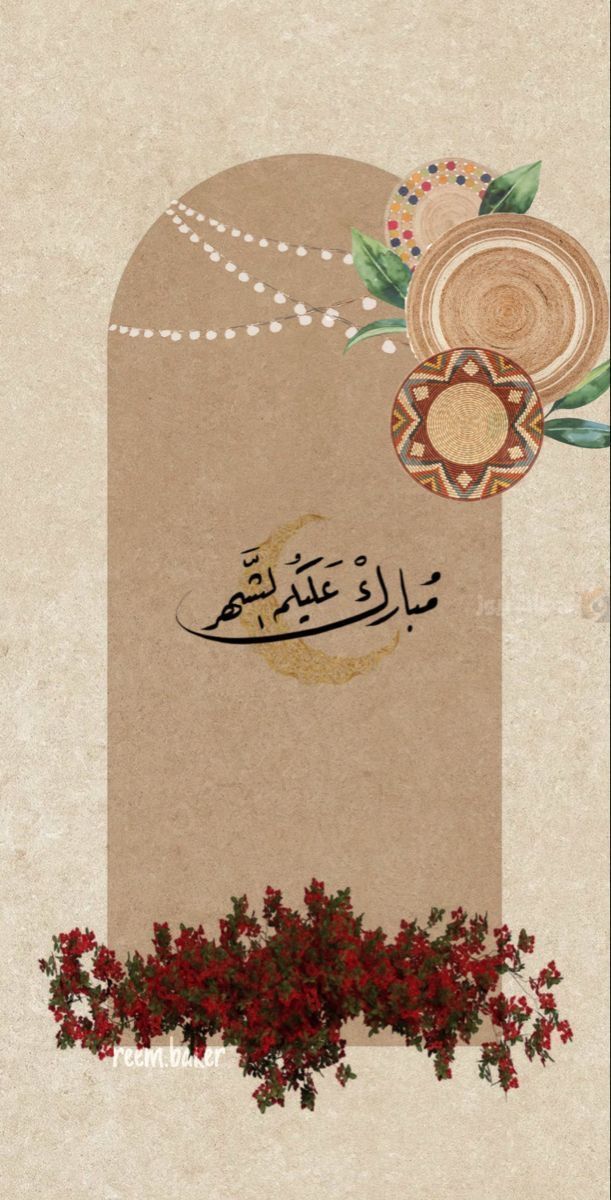 مُباركْ عَليكُم الشَّهر
reem.baker